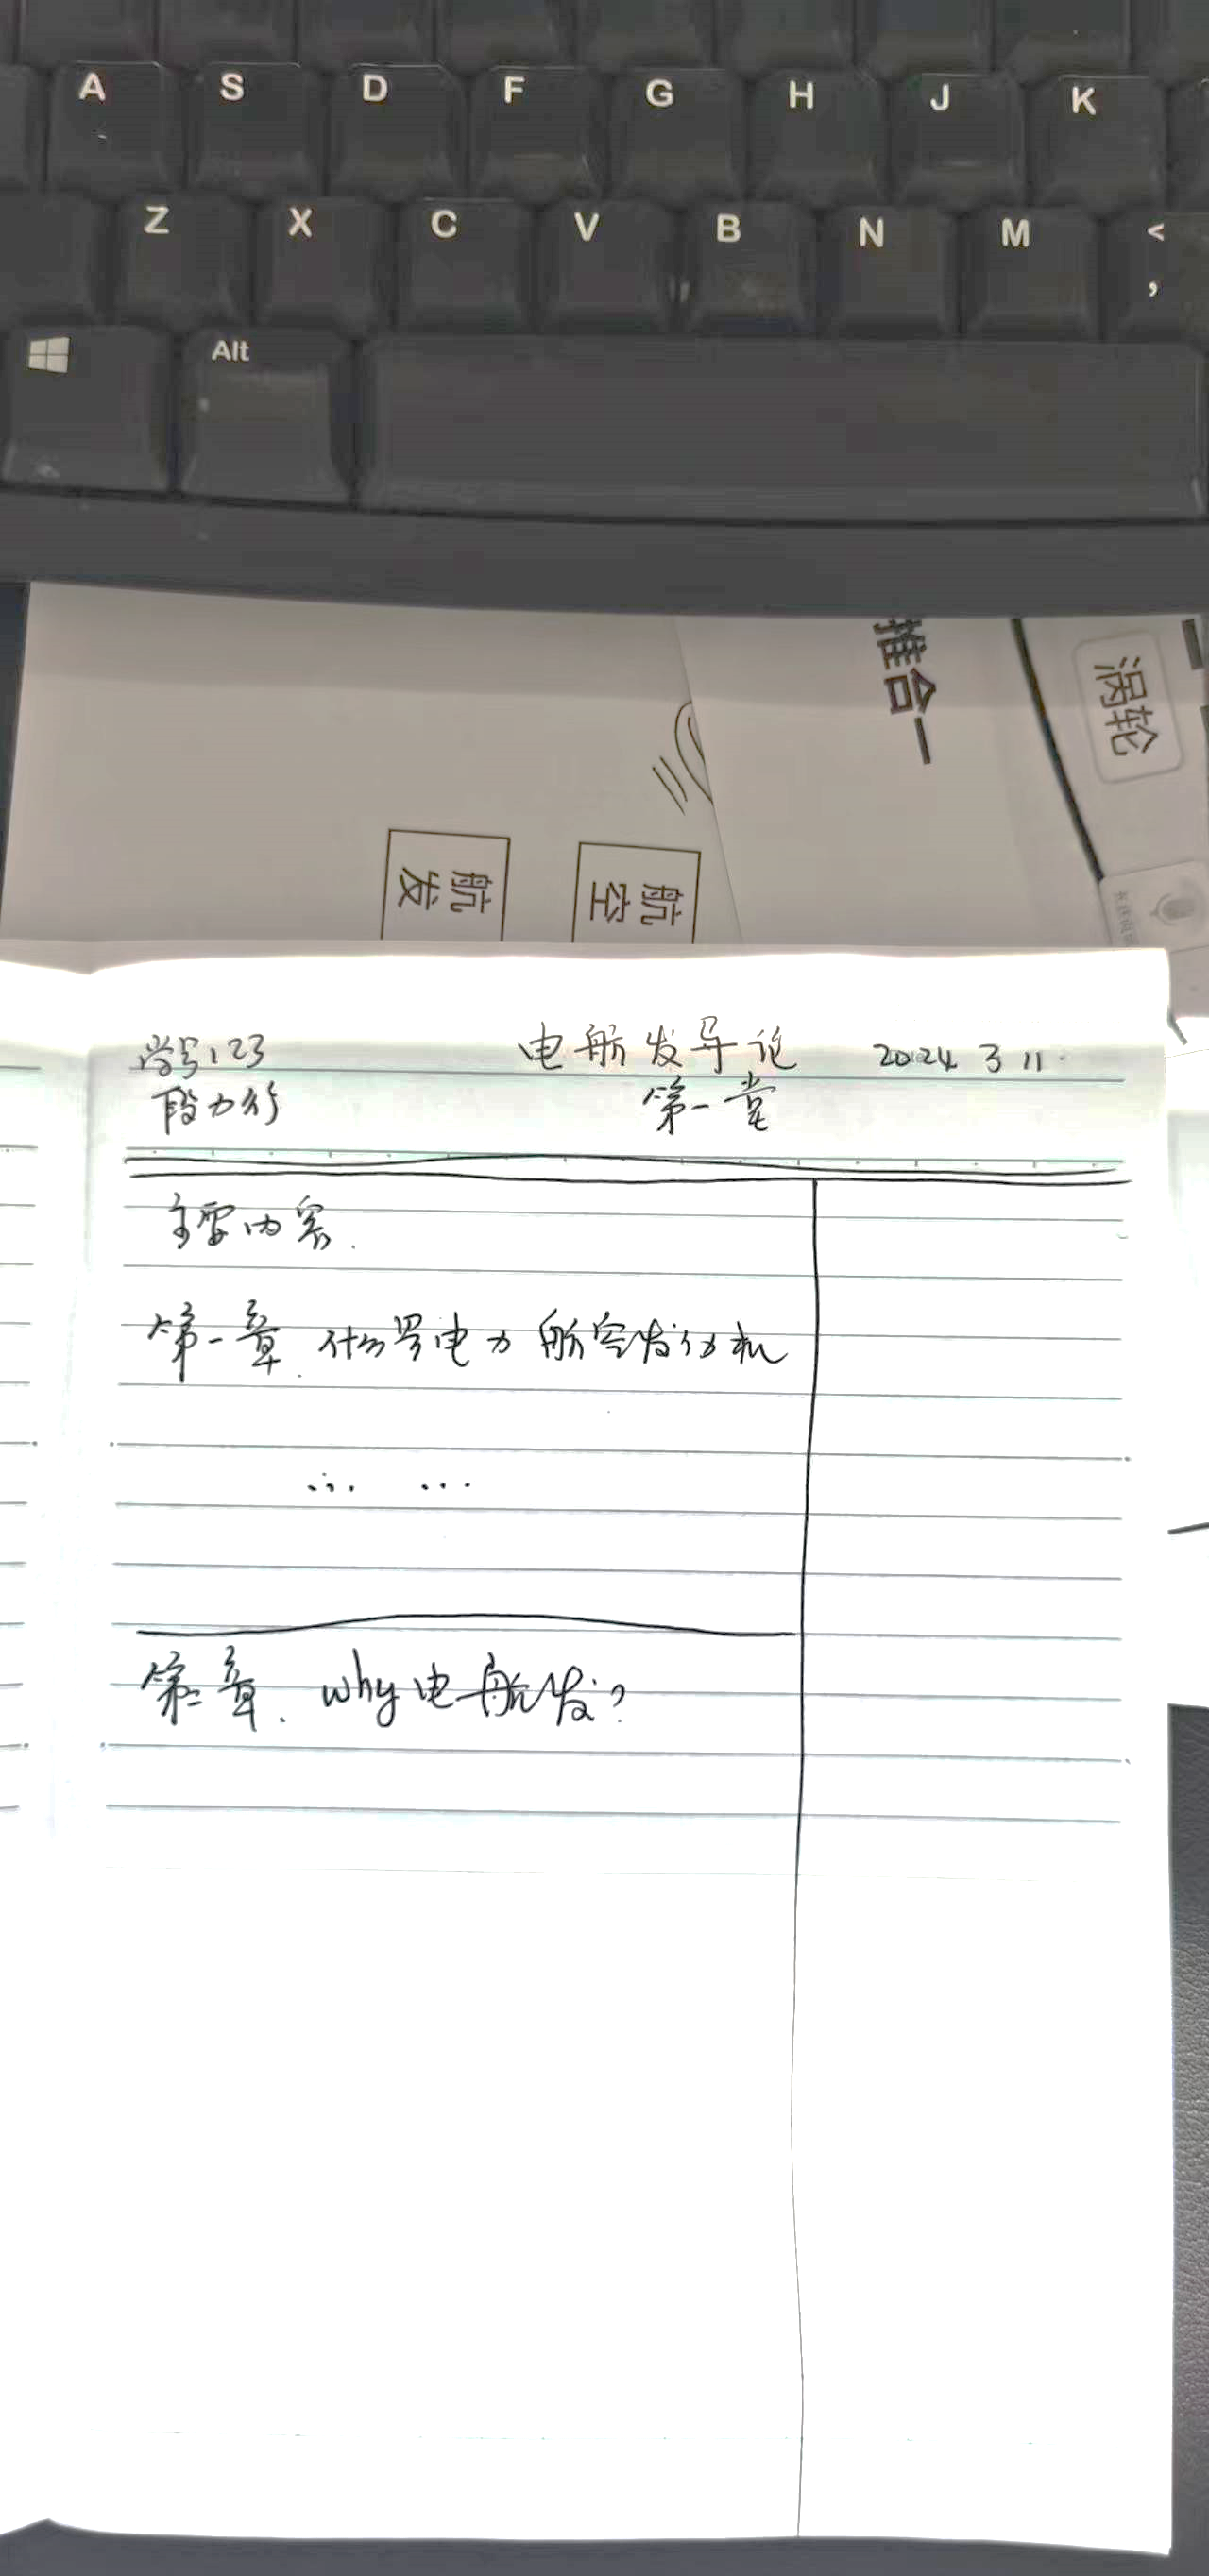 A S D F G H J K
Z X C V B N M < ,
Alt
推合一
涡轮
航发
航空
学号123 电航发导论 2024 3 11
段力行 第一堂
主要内容.
第一章. 什么是电力航空发动机
... ...
第二章. why电航发?